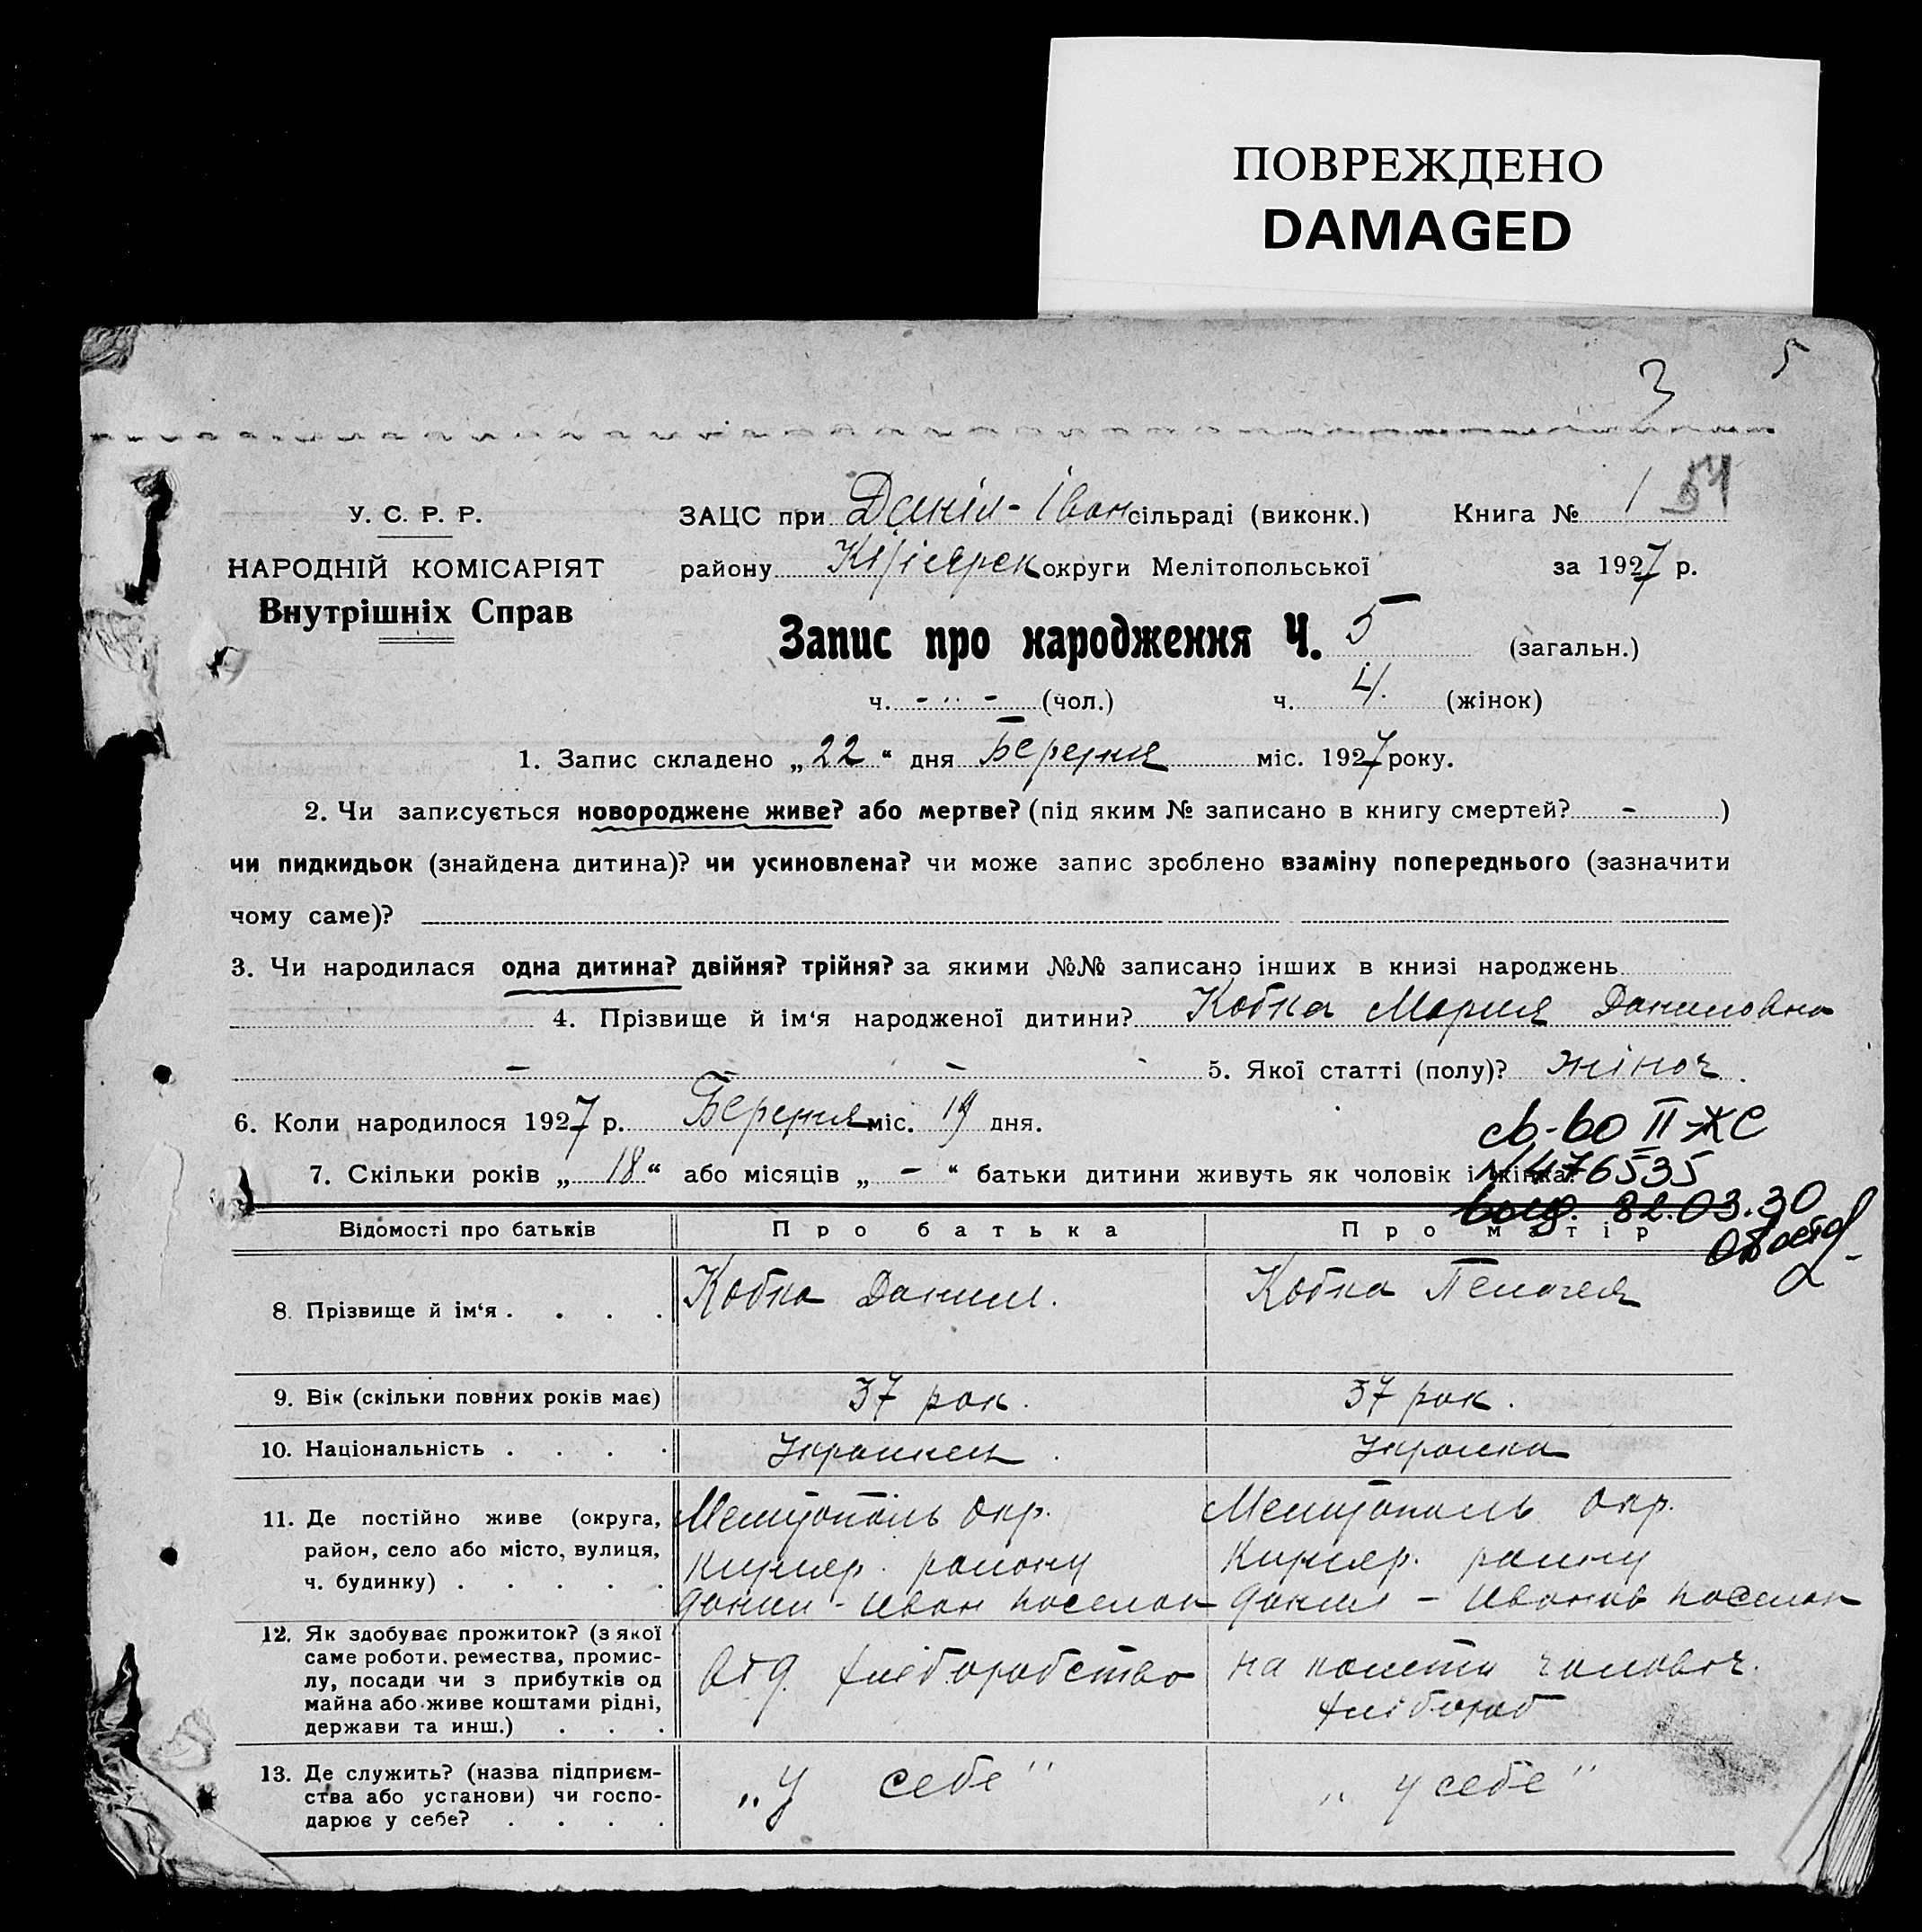 ПОВРЕЖДЕНО
DAMAGED
3 5
У. С. Р. Р.
НАРОДНІЙ КОМІСАРІЯТ
Внутрішніх Справ
ЗАЦС при Даніл-Іван сільраді (виконк.) Книга № 1 54
району округи Мелітопольської за 1927 р.
Запис про народження Ч. 5 (загальн.)
ч. - - (чол.) ч. 4. (жінок)
1. Запис складено „22“ дня Березня міс. 1927 року.
2. Чи записується новороджене живе? або мертве? (під яким № записано в книгу смертей? - )
чи пидкидьок (знайдена дитина)? чи усиновлена? чи може запис зроблено взаміну попереднього (зазначити
чому саме)?
3. Чи народилася одна дитина? двійня? трійня? за якими №№ записано інших в книзі народжень
4. Прізвище й ім‘я народженої дитини? Кобка Мария Даниловна
- - 5. Якої статті (полу)? жіноч.
6. Коли народилося 1927 р. Березня міс. 19 дня.
7. Скільки років „18“ або місяців „ - “ батьки дитини живуть як чоловік і жінка?
св-во II-ЖС
N 476535
выд. 82.03.30
Відомості про батьків Про батька Про матір
8. Прізвище й ім‘я . . . . Кобка Данил. Кобка Пелагея
9. Вік (скільки повних років має) 37 рок. 37 рок.
10. Національність . . . . Украинец. Украинка
11. Де постійно живе (округа,
район, село або місто, вулиця,
ч. будинку) . . . . .
Мелитополь окр.
Кизияр. району
Данил-Иван поселок
Мелитополь окр.
Кизияр. району
Данил-Иванов поселок
12. Як здобуває прожиток? (з якої
саме роботи, ремества, промис-
лу, посади чи з прибутків од
майна або живе коштами рідні,
держави та инш.) . . .
хліборобство
на кошти чоловіч.
хлібороб
13. Де служить? (назва підприєм-
ства або установи) чи госпо-
дарює у себе? . . . .
„У себе“
„у себе“